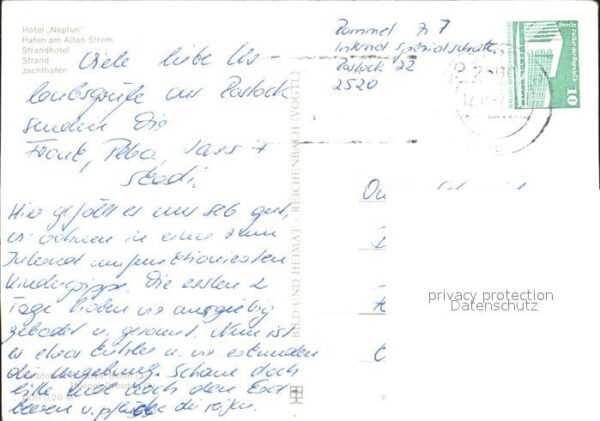 Hotel „Neptun"
Hafen am Alten Strom
Strandhotel
Strand
Jachthafen
Viele liebe Ur-
laubsgrüße aus Rostock
senden Die
Frank, Petra, Lars +
Hier gefällt es uns seh gut,
wir wohnen in eine zum
Internat umfunktionierten
Die ersten 2
Tage haben wir ausgiebig
gebadet u. gesonnt. Nun ist
es etwas kühler u. wir erkunden
die Umgebung. Schaue doch
bitte mal nach den Erd
beeren u. pflücke die reifen.
0,20 M
BILD UND HEIMAT REICHENBACH (VOGTL)
Rummel Zi 7
Internat Spezialschule
Rostock 22
2520
10
privacy protection
Datenschutz